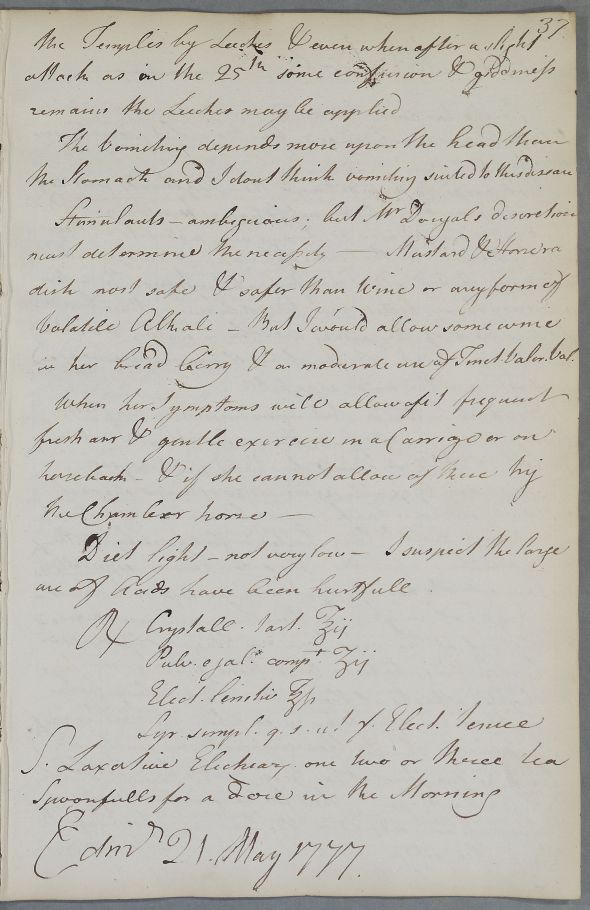 37
the Temples by Leeches & even when after a slight
attack as on the 25th some confusion & giddiness
remains the Leeches may be applied
The Vomiting depends more upon the head than
the Stomach and I dont think vomiting suited to this disease
Stimulants – ambiguous, but Mr Dougals discretion
must determine the necessity — Mustard & Horsera
dish most safe & safer than wine or any form of
Volatile Alkali – But I would allow some wine
in her bread berry & a moderate use of Tinct. Valer. Vol.
When her Symptoms will allow of it frequent
fresh air & gentle exercise in a Carriage or on
horseback – & if she cannot allow of these try
the Chamber horse —
Diet light – not very low – I suspect the large
use of Acids have been hurtfull
℞ Crystall. tart. ʒij
Pulv. e jalap. compt. ʒij
Elect. lenitiv ℥ß
Syr simpl. q. s. ut f. Elect. tenue
S. Laxative Electuary one two or three tea
Spoonfulls for a dose in the Morning
Edinr 21. May 1777.